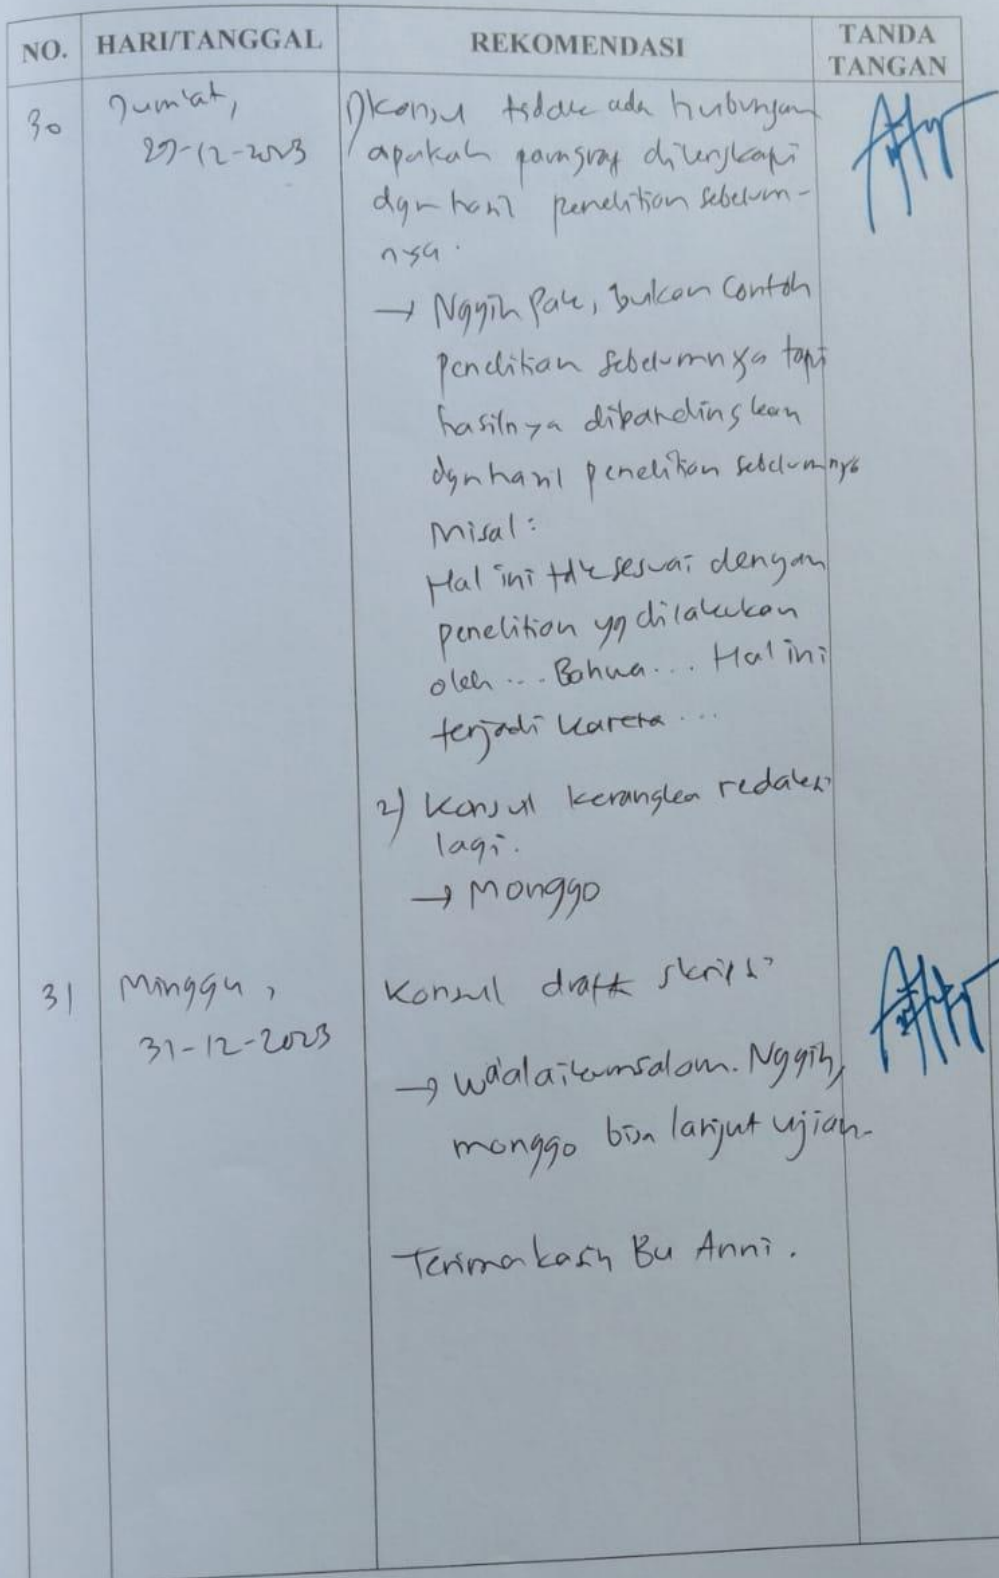 NO. HARI/TANGGAL REKOMENDASI TANDA TANGAN
30 Jum'at, 1) Konsul tidak ada hubungan
29-12-2023 apakah paragraf dilengkapi
dgn hasil penelitian sebelum-
nya.
→ Nggih Pak, bukan contoh
penelitian sebelumnya tapi
hasilnya dibandingkan
dgn hasil penelitian sebelumnya
Misal:
Hal ini tdk sesuai dengan
penelitian yg dilakukan
oleh ... Bahwa ... Hal ini
terjadi karena ...
2) Konsul kerangka redaksi
lagi.
→ Monggo
31 Minggu, Konsul draft skripsi
31-12-2023
→ Wa'alaikumsalam. Nggih,
monggo bisa lanjut ujian.
Terimakasih Bu Anni.